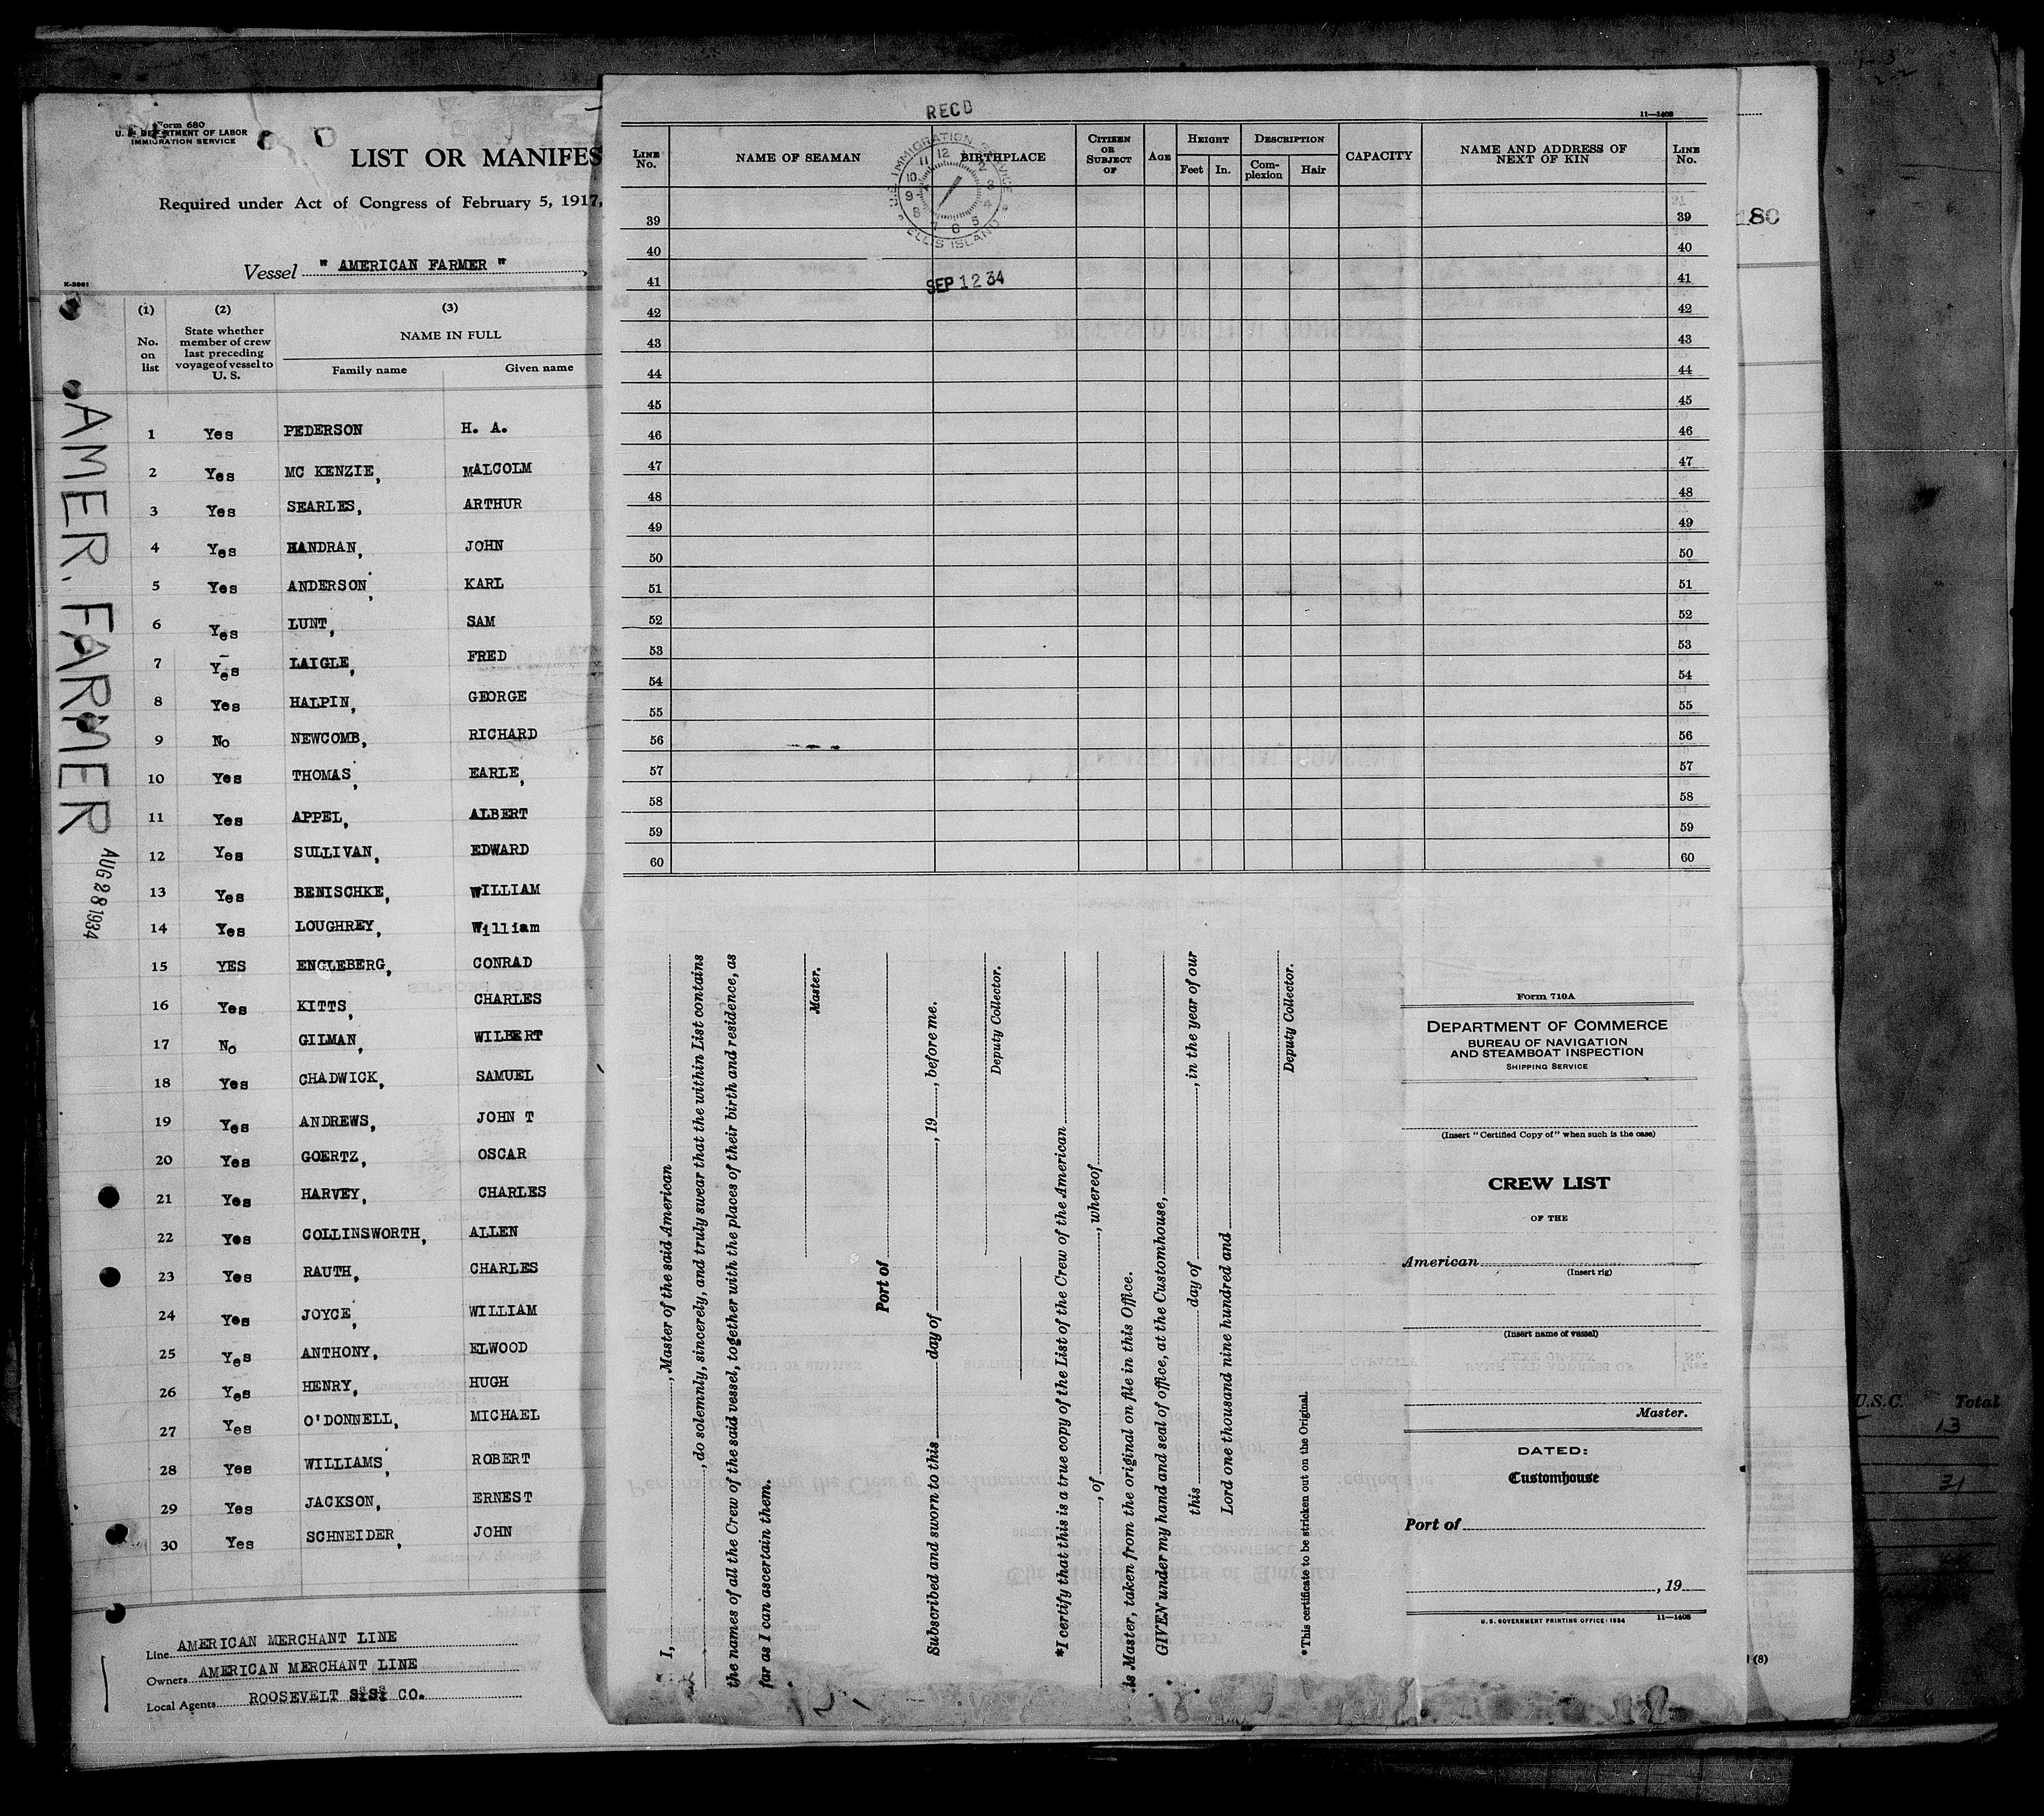 Form 680
U. S. DEPARTMENT OF LABOR
IMMIGRATION SERVICE
LIST OR MANIFES
Required under Act of Congress of February 5, 1917,
Vessel " AMERICAN FARMER " ,
K-2961
(1) (2) (3)
No. on list
State whether member of crew last preceding voyage of vessel to U. S.
NAME IN FULL
Family name Given name
1 Yes PEDERSON H. A.
2 Yes MC KENZIE, MALCOLM
3 Yes SEARLES, ARTHUR
4 Yes HANDRAN, JOHN
5 Yes ANDERSON, KARL
6 Yes LUNT, SAM
7 Yes LAIGLE, FRED
8 Yes HALPIN, GEORGE
9 No NEWCOMB, RICHARD
10 Yes THOMAS, EARLE,
11 Yes APPEL, ALBERT
12 Yes SULLIVAN, EDWARD
13 Yes BENISCHKE, WILLIAM
14 Yes LOUGHREY, William
15 YES ENGLEBERG, CONRAD
16 Yes KITTS, CHARLES
17 No GILMAN, WILBERT
18 Yes CHADWICK, SAMUEL
19 Yes ANDREWS, JOHN T
20 Yes GOERTZ, OSCAR
21 Yes HARVEY, CHARLES
22 Yes COLLINSWORTH, ALLEN
23 Yes RAUTH, CHARLES
24 Yes JOYCE, WILLIAM
25 Yes ANTHONY, ELWOOD
26 Yes HENRY, HUGH
27 Yes O'DONNELL, MICHAEL
28 Yes WILLIAMS, ROBERT
29 Yes JACKSON, ERNEST
30 Yes SCHNEIDER, JOHN
Line AMERICAN MERCHANT LINE
Owners AMERICAN MERCHANT LINE
Local Agents ROOSEVELT CO.
AMER. FARMER
AUG 28 1934
RECD
U.S. IMMIGRATION SERVICE
ELLIS ISLAND
12
2
3
4
5
6
7
8
9
10
11
SEP 12 34
11—1408
LINE No.
NAME OF SEAMAN
BIRTHPLACE
CITIZEN OR SUBJECT OF
AGE
HEIGHT
Feet In.
DESCRIPTION
Complexion Hair
CAPACITY
NAME AND ADDRESS OF NEXT OF KIN
LINE No.
39 39
40 40
41 41
42 42
43 43
44 44
45 45
46 46
47 47
48 48
49 49
50 50
51 51
52 52
53 53
54 54
55 55
56 56
57 57
58 58
59 59
60 60
I, , Master of the said American
, do solemnly, sincerely, and truly swear that the within List contains
the names of all the Crew of the said vessel, together with the places of their birth and residence, as
far as I can ascertain them.
Master.
Port of
Subscribed and sworn to this day of , 19 , before me.
Deputy Collector.
*I certify that this is a true copy of the List of the Crew of the American
, of , whereof
is Master, taken from the original on file in this Office.
GIVEN under my hand and seal of office, at the Customhouse,
this day of , in the year of our
Lord one thousand nine hundred and
Deputy Collector.
*This certificate to be stricken out on the Original.
Form 710A
DEPARTMENT OF COMMERCE
BUREAU OF NAVIGATION
AND STEAMBOAT INSPECTION
SHIPPING SERVICE
(Insert "Certified Copy of" when such is the case)
CREW LIST
OF THE
American
(Insert rig)
(Insert name of vessel)
Master.
DATED:
Customhouse
Port of
, 19
U. S. GOVERNMENT PRINTING OFFICE: 1934 11—1408
180
U.S.C. Total
13
31
(8)